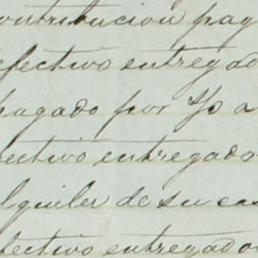 contribucion pag
efectivo entregad
pagado por Yo a
fectivo entregado
lquiler de su cas
fectivo entregado